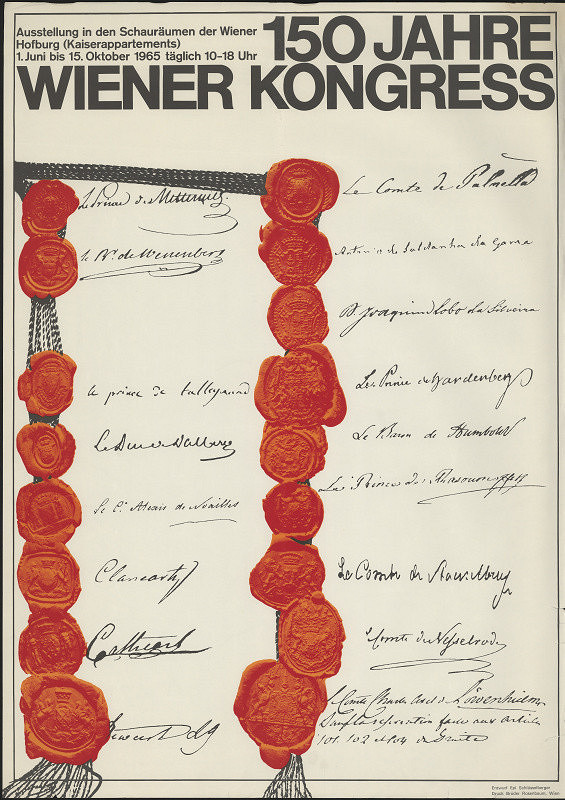 Ausstellung in den Schauräumen der Wiener
Hofburg (Kaiserappartements)
1. Juni bis 15. Oktober 1965 täglich 10–18 Uhr
150 JAHRE
WIENER KONGRESS
Le Prince de Metternich.
le Bn. de Wessenberg
le prince de talleyrand
Le Duc de Dalberg
le Cte Alexis de Noailles
Clancarty
Cathcart
Stewart LG
Le Comte de Palmella
Antonio de Saldanha da Gama
D Joaquim Lobo da Silveira
Le Prince de Hardenberg
Le Baron de Humboldt
Le Prince de Rasoumoffsky
Le Comte de Stackelberg
le Comte de Nesselrode
le Comte Charles Axel de Löwenhielm
Sauf la réservation faite aux articles
101. 102 et 104 du Traité
Entwurf Epi Schlüsselberger
Druck Brüder Rosenbaum, Wien